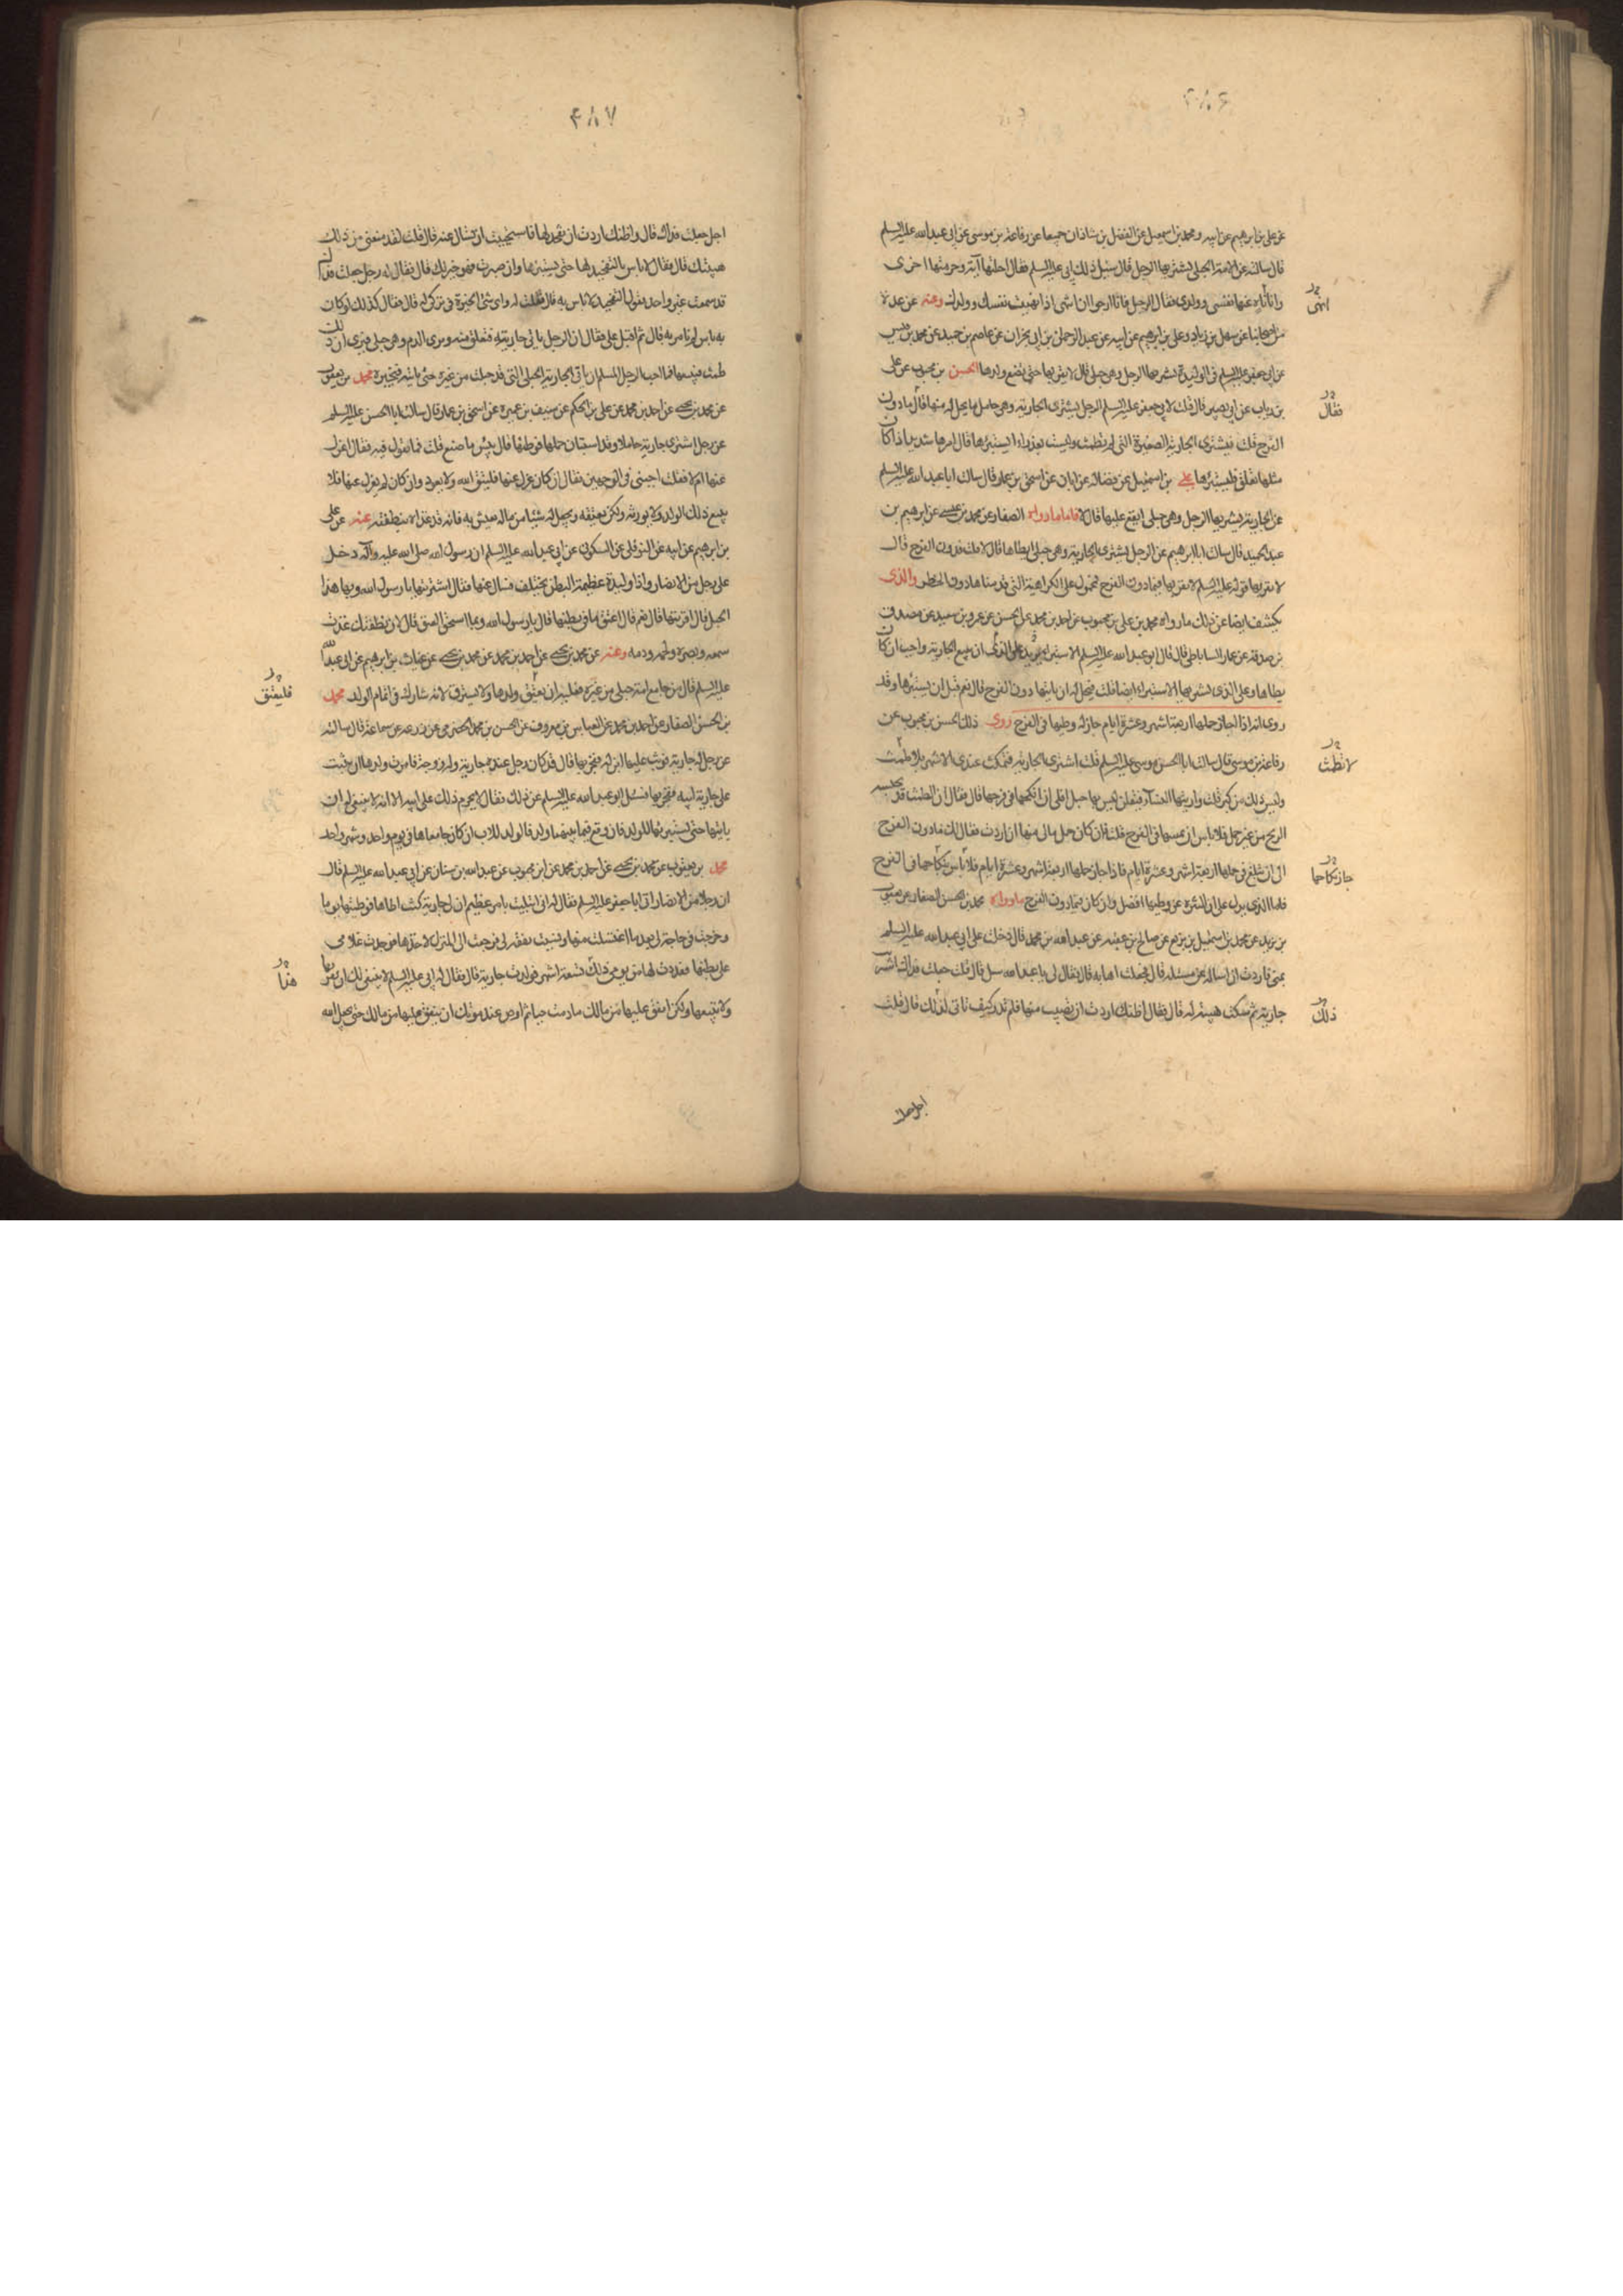 ۴۸۶
عن علي بن ابرهيم عن ابيه و محمد بن اسمعيل عن الفضل بن شاذان جميعا عن رفاعة بن موسى عن ابي عبد الله عليه السلم
قال سالته عن الامة الحبلى يشتريها الرجل قال سئل ذلك ابي عليه السلم فقال احلتها آية وحرمتها اخرى
وانا ناه عنها نفسي وولدى فقال الرجل فانا ارجوا ان انتهى اذا نهيت نفسك وولدك وعنه عن عدة
انهى
من اصحابنا عن سهل بن زياد وعلي بن ابرهيم عن ابيه عن عبد الرحمن بن ابي نجران عن عاصم بن حميد عن محمد بن قيس
عن ابي جعفر عليه السلم في الوليدة يشتريها الرجل وهي حبلى قال لا يقربها حتى تضع ولدها الحسن بن محبوب عن علي
بن رياب عن ابي بصير قال قلت لابي جعفر عليه السلم الرجل يشترى الجارية وهي حامل ما يحل له منها قال ما دون
فقال
الفرج قلت فيشترى الجارية الصغيرة التي لم تطمث وليست بعذراء ايستبرؤها قال امرها شديد اذا كان
مثلها تعلق فليستبرؤها علي بن اسمعيل عن فضالة عن ابان عن اسحق بن عمار قال سالت ابا عبد الله عليه السلم
عن الجارية يشتريها الرجل وهي حبلى ايقع عليها قال لا فاما ما رواه الصفار عن محمد بن عيسى عن ابرهيم بن
عبد الحميد قال سالت ابا ابرهيم عن الرجل يشترى الجارية وهي حبلى ايطاها قال لا قلت فدون الفرج قال
لا يقربها قوله عليه السلم لا يقربها فيما دون الفرج محمول على الكراهية التي قدمناها دون الحظر والذى
يكشف ايضا عن ذلك ما رواه محمد بن علي بن محبوب عن احمد بن محمد عن الحسن عن عمرو بن سعيد عن مصدق
بن صدقة عن عمار الساباطي قال قال ابو عبد الله عليه السلم الاستبراء على الذى يبيع الجارية واجب ان كان
يطاها وعلى الذى يشتريها الاستبراء ايضا قلت فيحل له ان ياتيها دون الفرج قال نعم قبل ان يستبرءها وقد
روى انه اذا جاز حملها اربعة اشهر وعشرة ايام جاز له وطيها في الفرج روى ذلك الحسن بن محبوب عن
رفاعة بن موسى قال سالت ابا الحسن موسى عليه السلم قلت اشترى الجارية فتمكث عندى الاشهر لا تطمث
لا تطمث
وليس ذلك من كبر قلت واريتها النسآء فيقلن ليس بها حبل افلي ان انكحها في فرجها قال فقال ان الطمث قد تحبسه
الريح من غير حمل فلا باس ان تمسها في الفرج قلت فان كان حمل مالي منها ان اردت فقال لك ما دون الفرج
الى ان تبلغ في حملها اربعة اشهر وعشرة ايام فاذا جاز حملها اربعة اشهر وعشرة ايام فلا باس بنكاحها في الفرج
جاز نكاحها
فاما الذى يدل على ان التنزه عن وطيها افضل وان كان فيما دون الفرج ما رواه محمد بن الحسن الصفار عن يعقوب
بن يزيد عن محمد بن اسمعيل بن بزيع عن صالح بن عقبه عن عبد الله بن محمد قال دخلت على ابي عبد الله عليه السلم
بمنى فاردت ان اساله عن مسئلة قال فجعلت اهابه قال فقال لي يا عبد الله سل قال قلت جعلت فداك اشتريت
جارية ثم سكت هيبة له قال فقال اظنك اردت ان تصيب منها فلم تدر كيف تاتي لذلك قال قلت
ذلك
اجل جعلت
۴۸۷
اجل جعلت فداك قال واظنك اردت ان تفخذ لها فاستحييت ان تسال عنه قال قلت لقد منعتني من ذلك
هيبتك قال فقال لا باس بالتفخيذ لها حتى يستبرءها وان صبرت فهو خير لك قال فقال له رجل جعلت فداك
قد سمعت غير واحد يقول التفخيذ لا باس به قال قلت له واى شئ الخيرة في تركي له قال فقال كذلك لو كان
به باس لم نامر به قال ثم اقبل علي فقال ان الرجل ياتي جاريته فتعلق منه وترى الدم وهي حبلى فيرى ان ذلك
طمث فيبيعها فما احب للرجل المسلم ان ياتي الجارية الحبلى التي قد حبلت من غيره حتى ياتيه فيخبره محمد بن يعقوب
عن محمد بن يحيى عن احمد بن محمد عن علي بن الحكم عن سيف بن عميرة عن اسحق بن عمار قال سالت ابا الحسن عليه السلم
عن رجل اشترى جارية حاملا وقد استبان حملها فوطئها قال بئس ما صنع قلت فما تقول فيه فقال اعزل
عنها ام لا فقلت اجبني في الوجهين فقال ان كان عزل عنها فليتق الله ولا يعود وان كان لم يعزل عنها فلا
يبيع ذلك الولد ولا يورثه ولكن يعتقه ويجعل له شيئا من ماله يعيش به فانه قد غذاه بنطفته عنه عن علي
بن ابرهيم عن ابيه عن النوفلي عن السكوني عن ابي عبد الله عليه السلم ان رسول الله صلى الله عليه وآله دخل
على رجل من الانصار واذا وليدة عظيمة البطن تختلف فسال عنها فقال اشتريتها يا رسول الله وبها هذا
الحبل قال اقربتها قال نعم قال اعتق ما في بطنها قال يا رسول الله وبما استحق العتق قال لان نطفتك غذت
سمعه وبصره ولحمه ودمه وعنه عن محمد بن يحيى عن احمد بن محمد عن محمد بن يحيى عن غياث بن ابرهيم عن ابي عبد الله
عليه السلم قال من جامع امة حبلى من غيره فعليه ان يعتق ولدها ولا يسترق لانه شارك في اتمام الولد محمد
فليعتق
بن الحسن الصفار عن احمد بن محمد عن العباس بن معروف عن الحسن بن محمد الحضرمي عن زرعه عن سماعة قال سالته
عن رجل له جارية فوثب عليها ابن له ففجر بها قال قد كان رجل عنده جارية وله زوجة فامرت ولدها ان يثب
على جارية ابيه ففجر بها فسئل ابو عبد الله عليه السلم عن ذلك فقال لا يحرم ذلك على ابيه الا انه لا ينبغي له ان
ياتيها حتى يستبرئها للولد فان وقع فيما بينهما ولد فالولد للاب ان كان جامعاها في يوم واحد وشهر واحد
محمد بن يعقوب عن محمد بن يحيى عن احمد بن محمد عن ابن محبوب عن عبد الله بن سنان عن ابي عبد الله عليه السلم قال
ان رجلا من الانصار اتى ابا جعفر عليه السلم فقال له اني ابتليت بامر عظيم ان لي جارية كنت اطاها فوطئتها يوما
وخرجت في حاجة لي بعد ما اغتسلت منها ونسيت نفقة لي فرجعت الى المنزل لاخذها فوجدت غلامي
على بطنها فعددت لها من يومي ذلك تسعة اشهر فولدت جارية قال فقال له ابي عليه السلم لا ينبغي لك ان تقربها
هذا
ولا تبيعها ولكن انفق عليها من مالك ما دمت حيا ثم اوص عند موتك ان ينفق عليها من مالك حتى يجعل الله